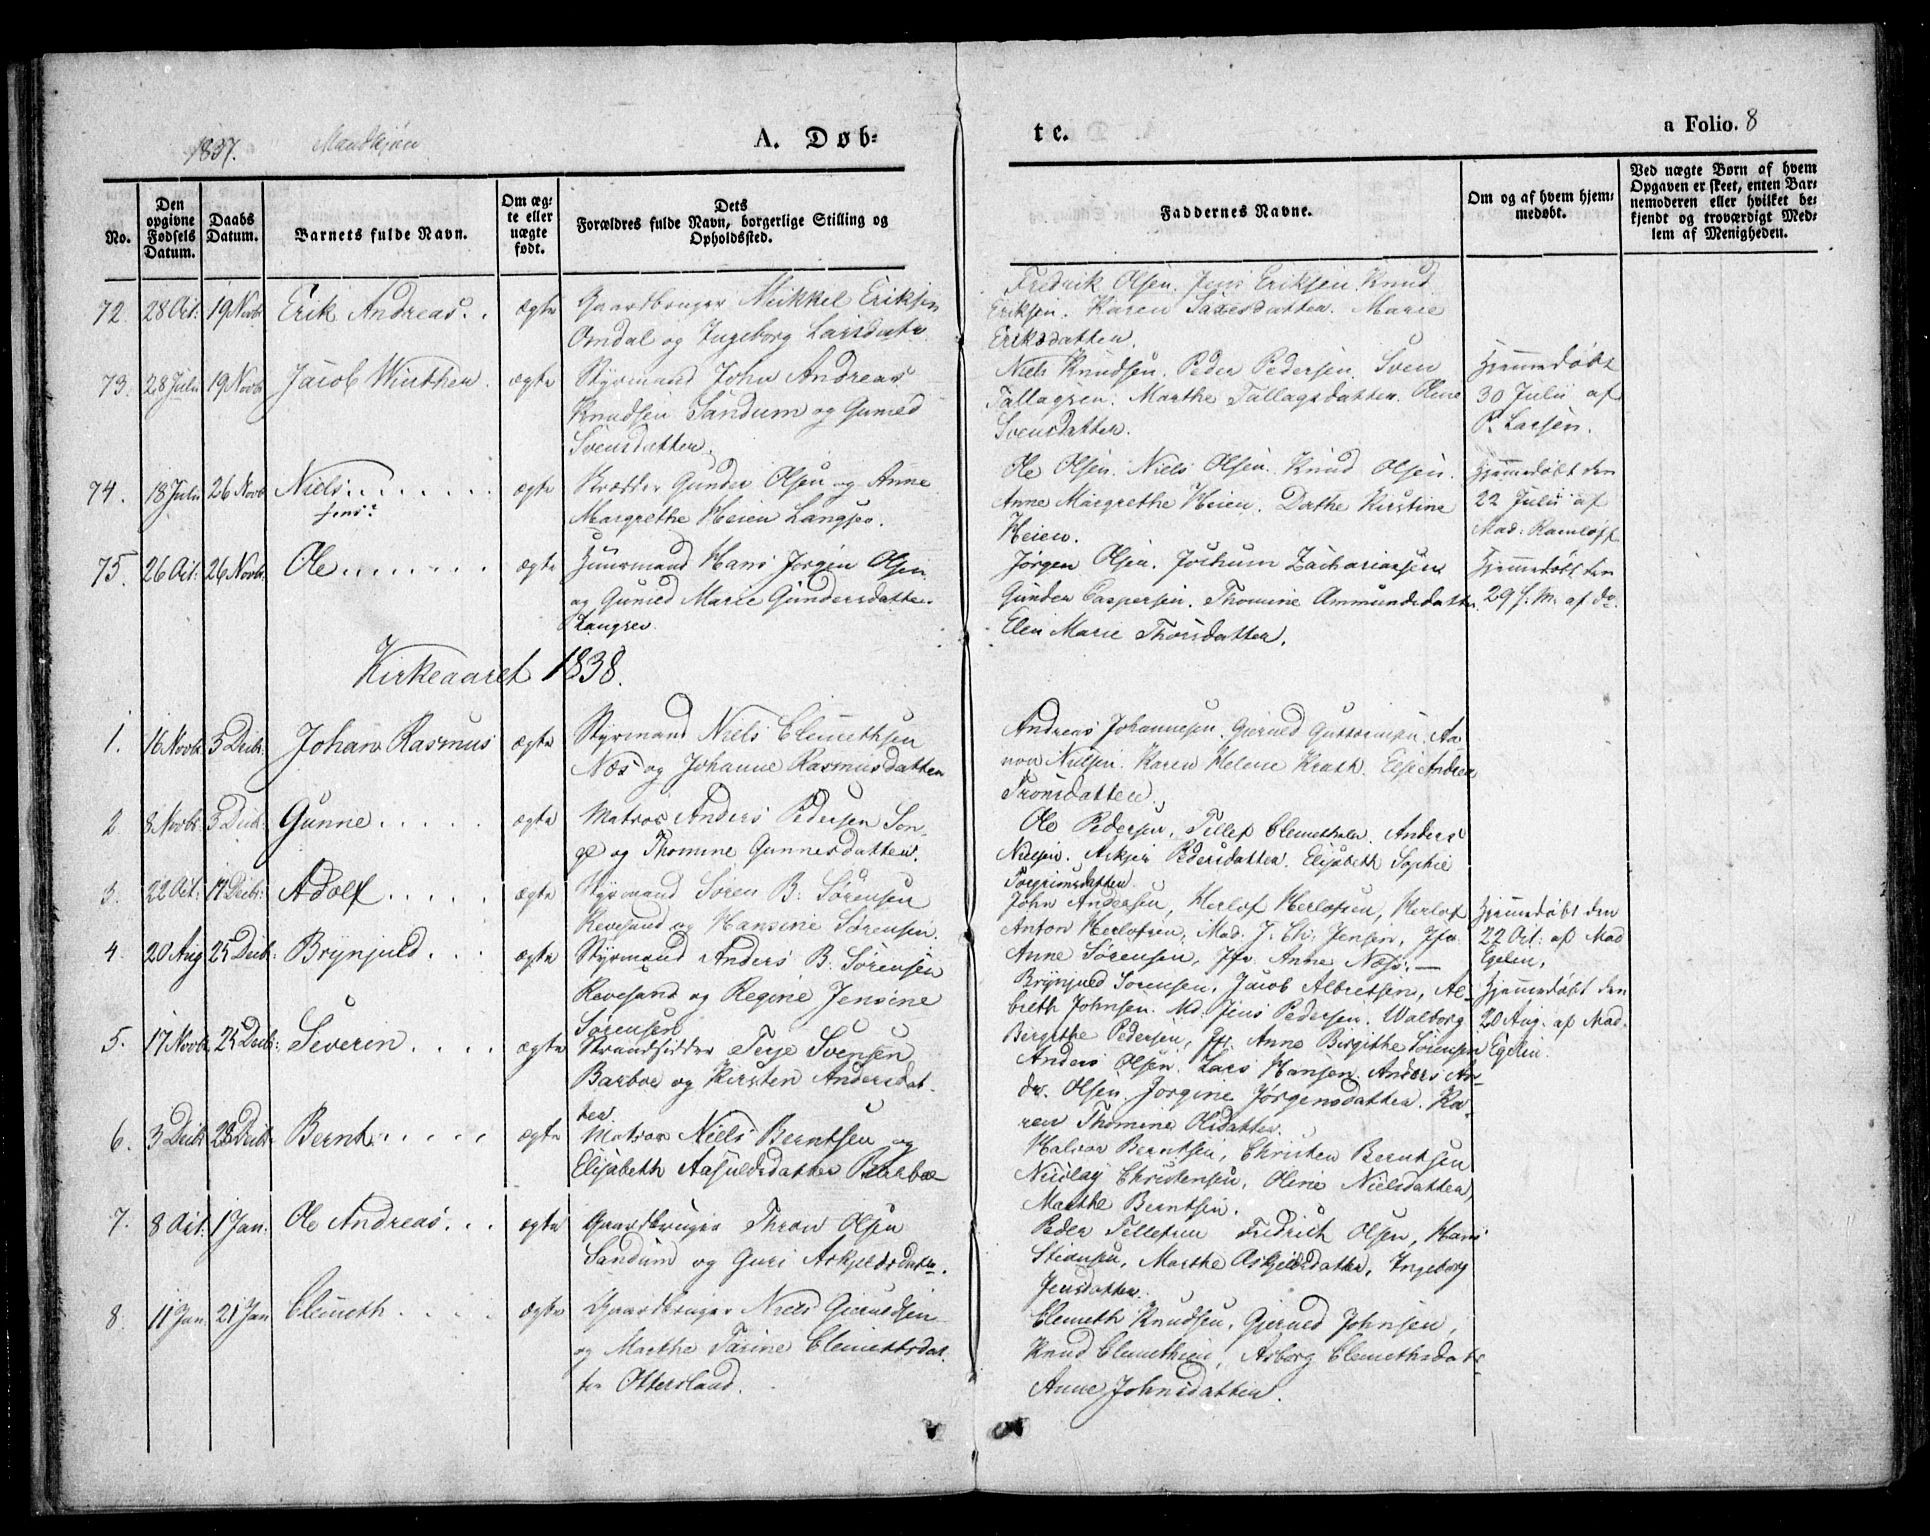 1837. Mandkjøn A. Døb- te. a Folio. 8
No. Den opgivne Fødsels Datum. Daabs Datum. Barnets fulde Navn. Om ægte eller uægte født. Dets Forældres fulde Navn, borgerlige Stilling og Opholdssted. Faddernes Navne. Om og af hvem hjemmedøbt. Ved uægte Børn af hvem Opgaven er skeet, enten Barnemoderen eller hvilket bekjendt og troværdigt Medlem af Menigheden.
72. 28 Oct: 19 Novbr Erik Andreas. ægte Gaardbruger Mikkel Eriksen
Omdal og Ingeborg Larsdatr.
Fredrik Olsen. Jens Eriksen. Knud
Eriksen. Karen Saxesdatter. Marie
Eriksdatter.
73. 28 Juli 19 Novbr Jacob Winther. ægte Styrmand John Andreas
Knudsen Sandum og Guned
Svensdatter.
Niels Knudsen. Peder Pedersen. Sven
Tallagsen. Marthe Tallagsdatter. Oline
Svensdatter.
Hjemmedøbt
30 Julii af
P. Larsen.
74. 18 Juli 26 Novb Niels. ægte Skrædder Gunder Olsen og Anne
Margrethe Heien Langsev.
Ole Olsen. Niels Olsen. Knud Olsen.
Anne Margrethe Heien. Dorthe Kirstine
Heien.
Hjemmedøbt den
22 Julii af
Mad: Ramløff
75. 26 Oct: 26 Novb: Ole. ægte Huusmand Hans Jørgen Olsen
og Guned Marie Gundersdatter
Langsev.
Jørgen Olsen. Jochum Zachariassen
Gunder Caspersen. Thomine Ammundsdatter.
Elen Marie Thorsdatter.
Hjemmedøbt den
29 f. M. af do.
Kirkeaaret 1838.
1. 16 Novbr 3 Decbr: Johan Rasmus ægte Styrmand Niels Clemethsen
Næs og Johanne Rasmusdatter
Andreas Johannesen. Gjeruld Guttormsen. Aa-
non Nilsen. Karen Helene Krath. Else Andrea
Tronsdatter.
2. 8 Novbr 3 Decbr: Gunne. ægte Matros Anders Pedersen Son-
ge og Thomine Gunnesdatter.
Ole Pedersen, Tellef Clemethsen. Anders
Nielsen. Askjer Pedersdatter. Elisabeth Sophie
Torgrimsdatter.
3. 22 Oct: 17 Decbr: Adolf. ægte Styrmand Søren B. Sørensen
Revesand og Hansine Sørensen.
John Andersen, Herlof Herlofsen, Herlof
Anton Herlofsen, Mad. J. Chr: Jensen, Jfr.
Anne Sørensen, Jfr. Anne Næss.
Hjemmedøbt den
22 Oct: af Mad
Egelin.
4. 20 Aug 25 Decb: Brynjuld. ægte Styrmand Anders B. Sørensen
Revesand og Regine Jensine
Sørensen
Brynjuld Sørensen, Jacob Albretsen, Al-
breth Johnsen. Md. Jens Pedersen. Walborg
Birgithe Pedersen, Jfr. Anne Birgithe Sørensen
Hjemmedøbt den
20 Aug. af Mad.
Egelin.
5. 17 Novbr 25 Decbr: Severin. ægte Strandsidder Terje Svensen
Barboe og Kirsten Andersdat-
ter.
Anders Olsen. Lars Hansen. Anders An-
dr. Olsen. Jorgine Jørgensdatter. Ka-
ren Thomine Olsdatter.
6. 3 Decbr 28 Decbr: Bernt. ægte Matros Niels Berntsen og
Elisabeth Aasuldsdatter Barboe
Halvor Berntsen, Christen Berntsen
Nicolay Christensen, Oline Nielsdatter
Marthe Berntsen.
7. 8 Oct. 1 Jan: Ole Andreas. ægte Gaardbruger Thron Olsen
Sandum og Guri Askjelsdatter.
Peder Tellefsen Fredrich Olsen, Hans
Stiansen, Marthe Askjelsdatter, Ingeborg
Jensdatter.
8. 11 Jan. 21 Jan Clemeth ægte Gaardbruger Niels Gjeruldsen
og Marthe Tarine Clemetsdat-
ter Ottersland.
Clemeth Knudsen, Gjeruld Johnsen,
Knud Clemethsen, Asborg Clemethsdatr
Anne Johnsdatter.